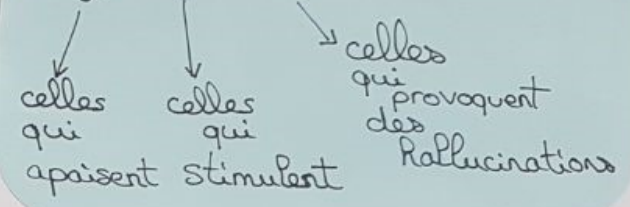 celles
qui
apaisent
celles
qui
stimulent
celles
qui
provoquent
des
hallucinations